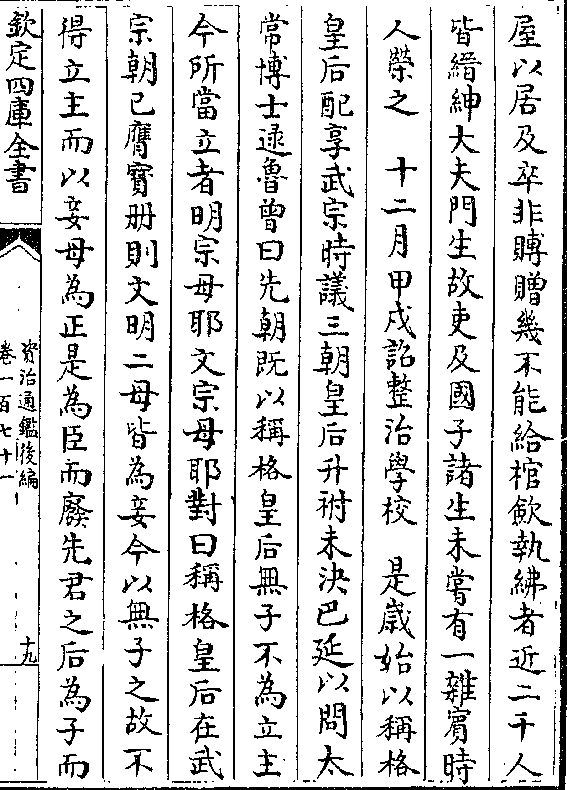 屋以居及卒非賻贈幾不能給棺歛執紼者近二千人
皆縉紳大夫門生故吏及國子諸生未嘗有一雜賔時
人榮之　十二月甲戌詔整治學校　是歲始以稱格
皇后配享武宗時議三朝皇后升祔未決巴延以問太
常博士逯魯曾曰先朝既以稱格皇后無子不為立主
今所當立者明宗母耶文宗母耶對曰稱格皇后在武
宗朝已膺寳册則文明二母皆為妾今以無子之故不
得立主而以妾母為正是為臣而廢先君之后為子而
欽定四庫全書
資治通鑑後編
卷一百七十一
十九